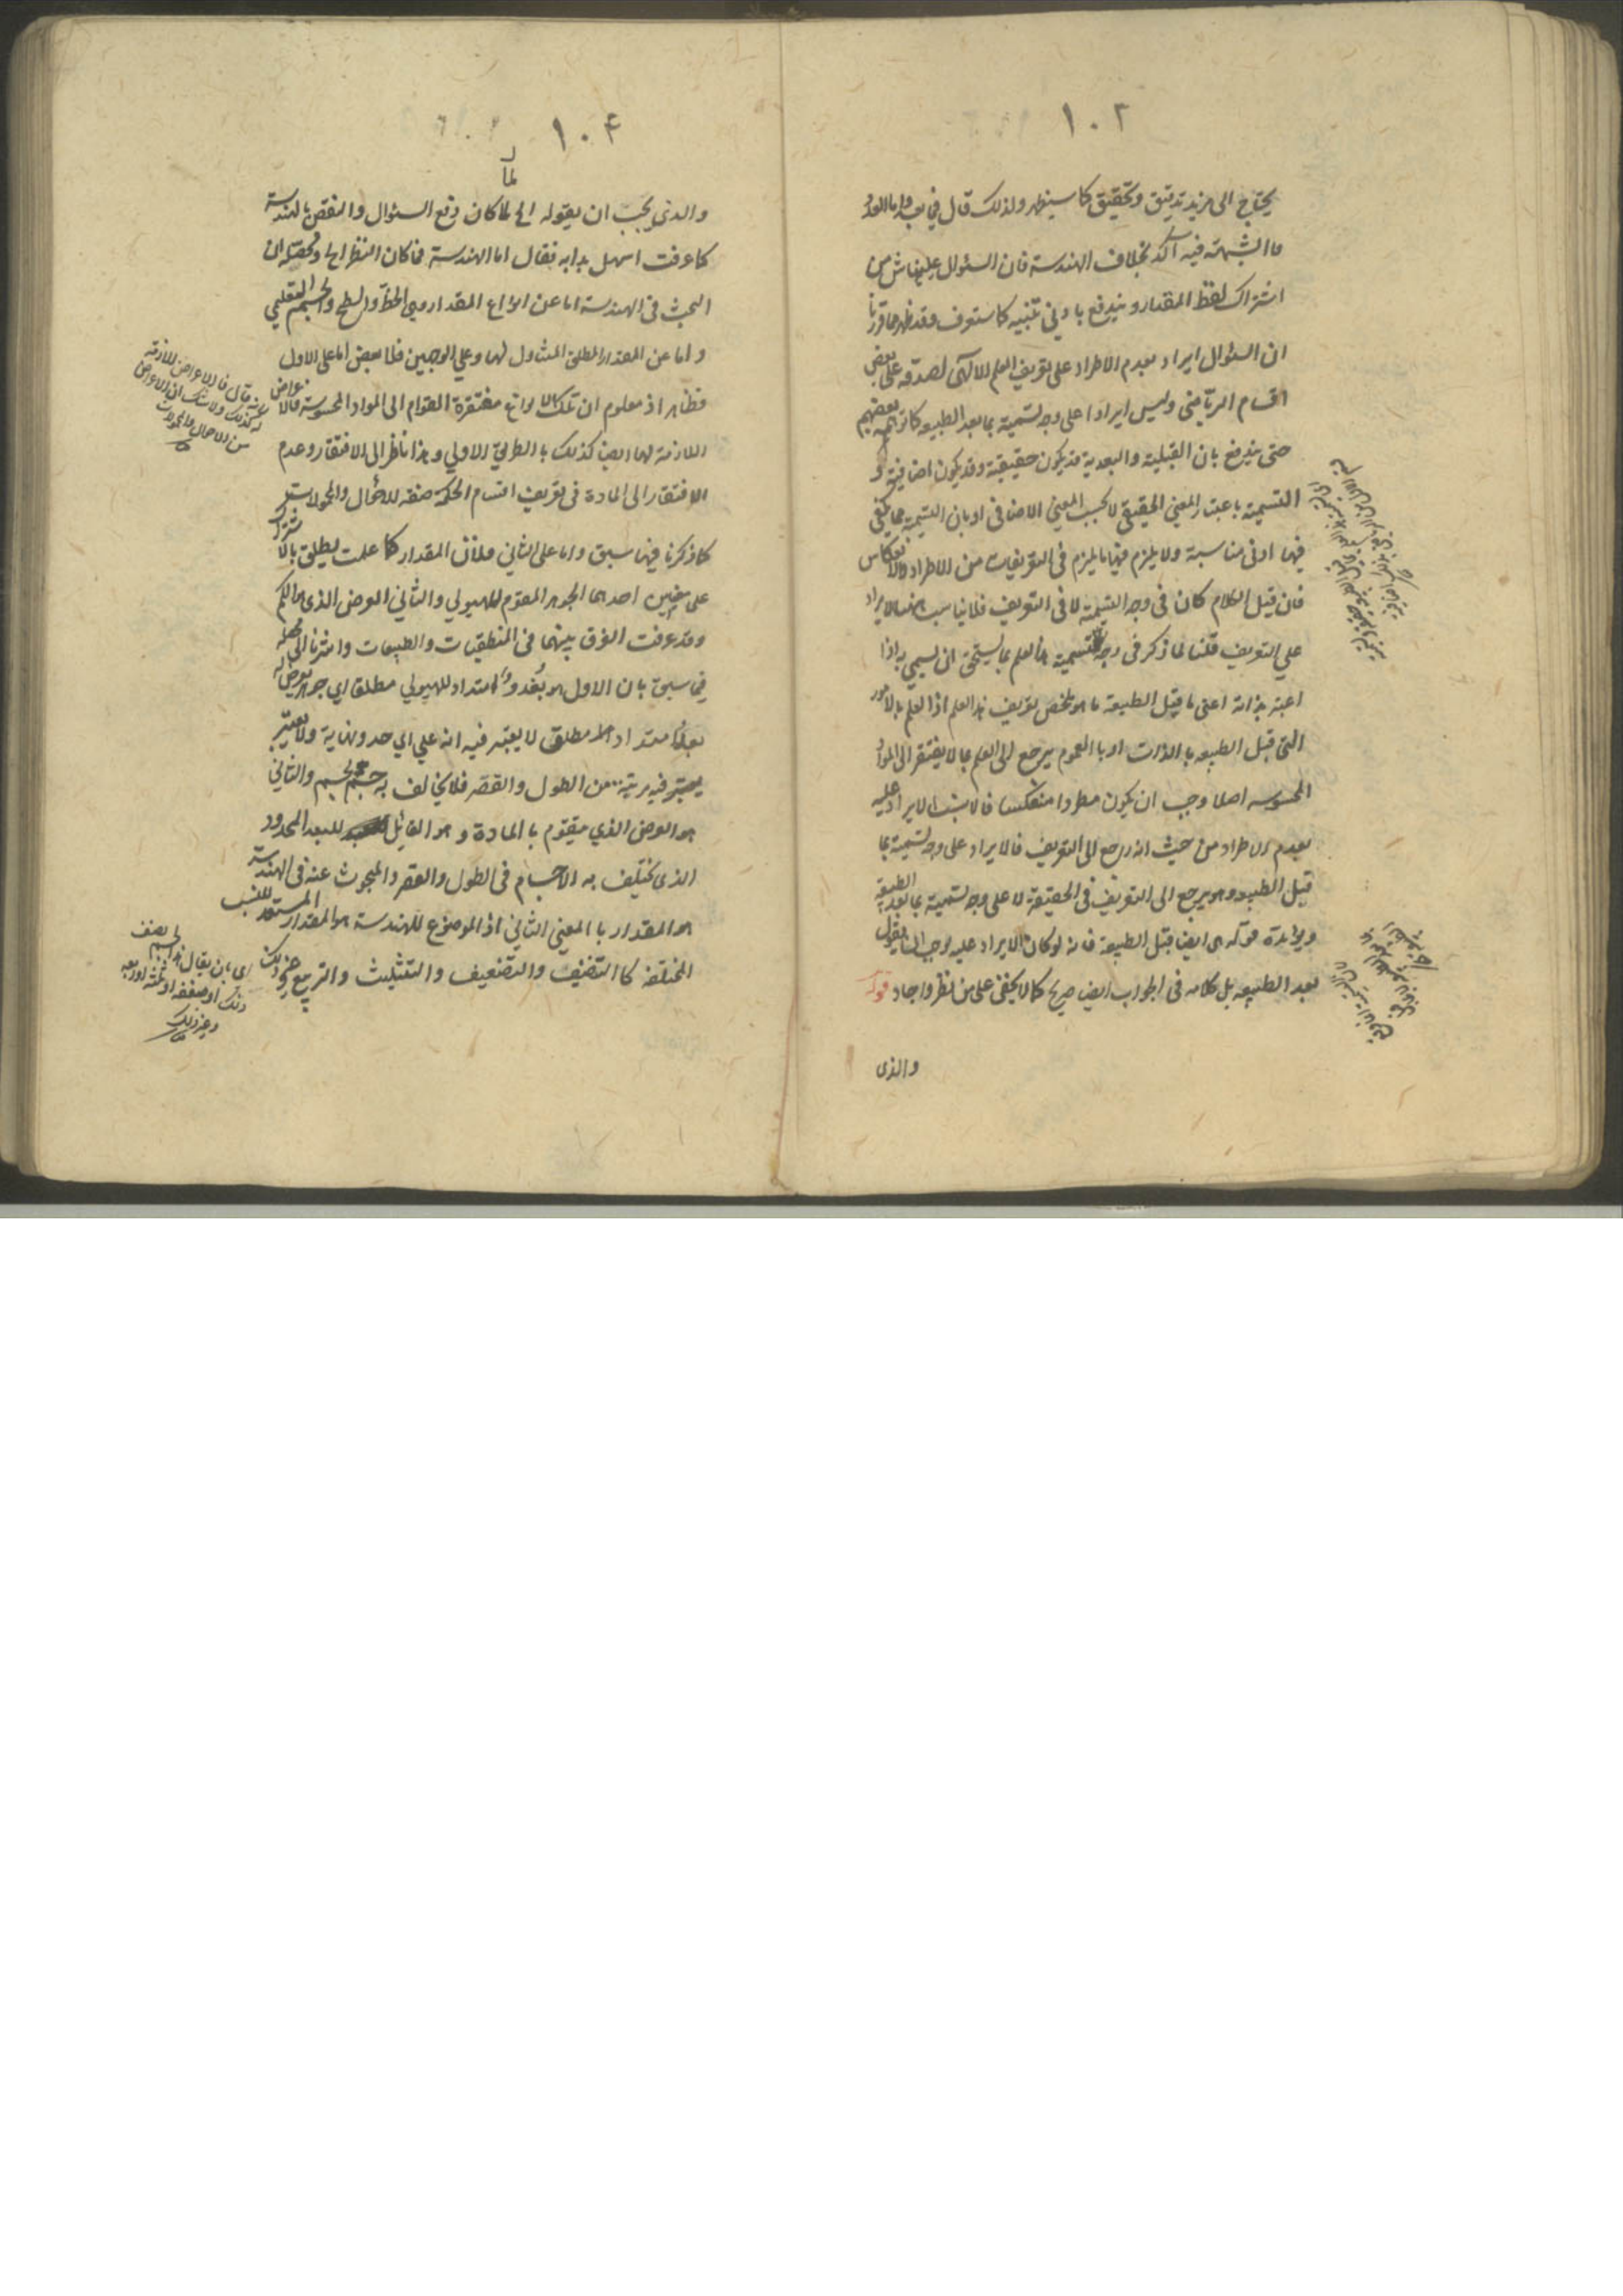 ١٠٢
يحتاج الى مزيد تدقيق وتحقيق كما سيظهر ولذلك قال في بعد واما العدد
فالشبهة فيه آكد بخلاف الهندسة فان السئوال عليها ناش من
اشتراك لفظ المقدار ويندفع بادنى تنبيه كما ستعرف وقد ظهر مما قررنا
ان السئوال ايراد بعدم الاطراد على تعريف العلم الالهى لصدقه على بعض
اقسام الرياضى وليس ايرادا على وجه تسميته بما بعد الطبيعه كما توهمه بعضهم
حتى يندفع بان القبلية والبعدية قد يكون حقيقية وقد يكون اضافية و
التسمية باعتبار المعنى الحقيقي لا بحسب المعنى الاضافى او بان التسمية مما يكفى
فيها ادنى مناسبة ولا يلزم فيها ما يلزم فى التعريفات من الاطراد والانعكاس
فان قيل الكلام كان فى وجه التسمية لا فى التعريف فلا يناسب هنا الايراد
على التعريف قلنا لما ذكر فى وجه التسمية ان العلم بما يستحق ان يسمى به اذا
اعتبر بذاته اعنى ما قبل الطبيعة ما هو تلخص تعريف هذا العلم اذ العلم بالامور
التى قبل الطبيعه بالذات او بالعموم يرجع الى العلم بما لا يفتقر الى المواد
المحسوسه اصلا وجب ان يكون مطردا منعكسا فالاشبه الايراد عليه
بعدم الاطراد من حيث انه يرجع الى التعريف فالايراد على وجه تسميته بما
قبل الطبيعه وهو يرجع الى التعريف فى الحقيقة لا على وجه تسميته بما بعد الطبيعة
ويؤيده قوله هى ايضا قبل الطبيعة فانه لو كان الايراد عليه لوجب ان يقول
بعد الطبيعه بل كلامه فى الجواب ايضا صريح كما لا يخفى على من نظر واجاد قوله
والذى
١٠۴
لما
والذى يجب ان يقوله الخ لما كان دفع السئوال والنقض بالهندسة
كما عرفت اسهل بدا به فقال اما الهندسة فما كان النظر الخ وتحصيله ان
البحث فى الهندسة اما عن انواع المقدار وهى الخط والسطح والجسم التعليمي
واما عن المقدار المطلق المتناول لها وعلى الوجهين فلا نقض اما على الاول
فظاهر اذ معلوم ان تلك الانواع مفتقرة القوام الى المواد المحسوسة فالاعراض
اللازمة لها ايضا كذلك بالطريق الاولى وهذا ناظر الى الافتقار وعدم
الافتقار الى المادة فى تعريف اقسام الحكمة صفة للاحوال والمحمولات
كما ذكرنا فيما سبق واما على الثانى فلان المقدار كما علمت يطلق بالاشتراك
على معنيين احدهما الجوهر المقوم للهيولى والثانى العرض الذى هو الكم
وقد عرفت الفرق بينهما فى المنطقيات والطبيعات واشرنا الى
فيما سبق بان الاول هو بعد وامتداد للهيولى مطلقا اى جوهر يعرض له
بعد وامتداد مطلق لا يعتبر فيه انه على اى حد ونهاية ولا يعتبر
فيه مرتبة من الطول والقصر فلا يخالف به جسم لجسم والثانى
هو العرض الذي متقوم بالمادة وهو القابل للبعد المحدود
الذى يختلف به الاجسام فى الطول والقصر والمبحوث عنه فى الهندسة
هو المقدار بالمعنى الثانى اذ الموضوع للهندسة هو المقدار المستعد للنسب
المختلفة كالتنصيف والتضعيف والتثليث والتربيع وغير ذلك
فالاعراض اللازمة
له كذلك ولا شك ان الاعراض
من الاحوال والمحمولات
اى بان يقال هذا الجسم نصف
ذلك او ضعفه او ثلثه او ربعه
وغير ذلك